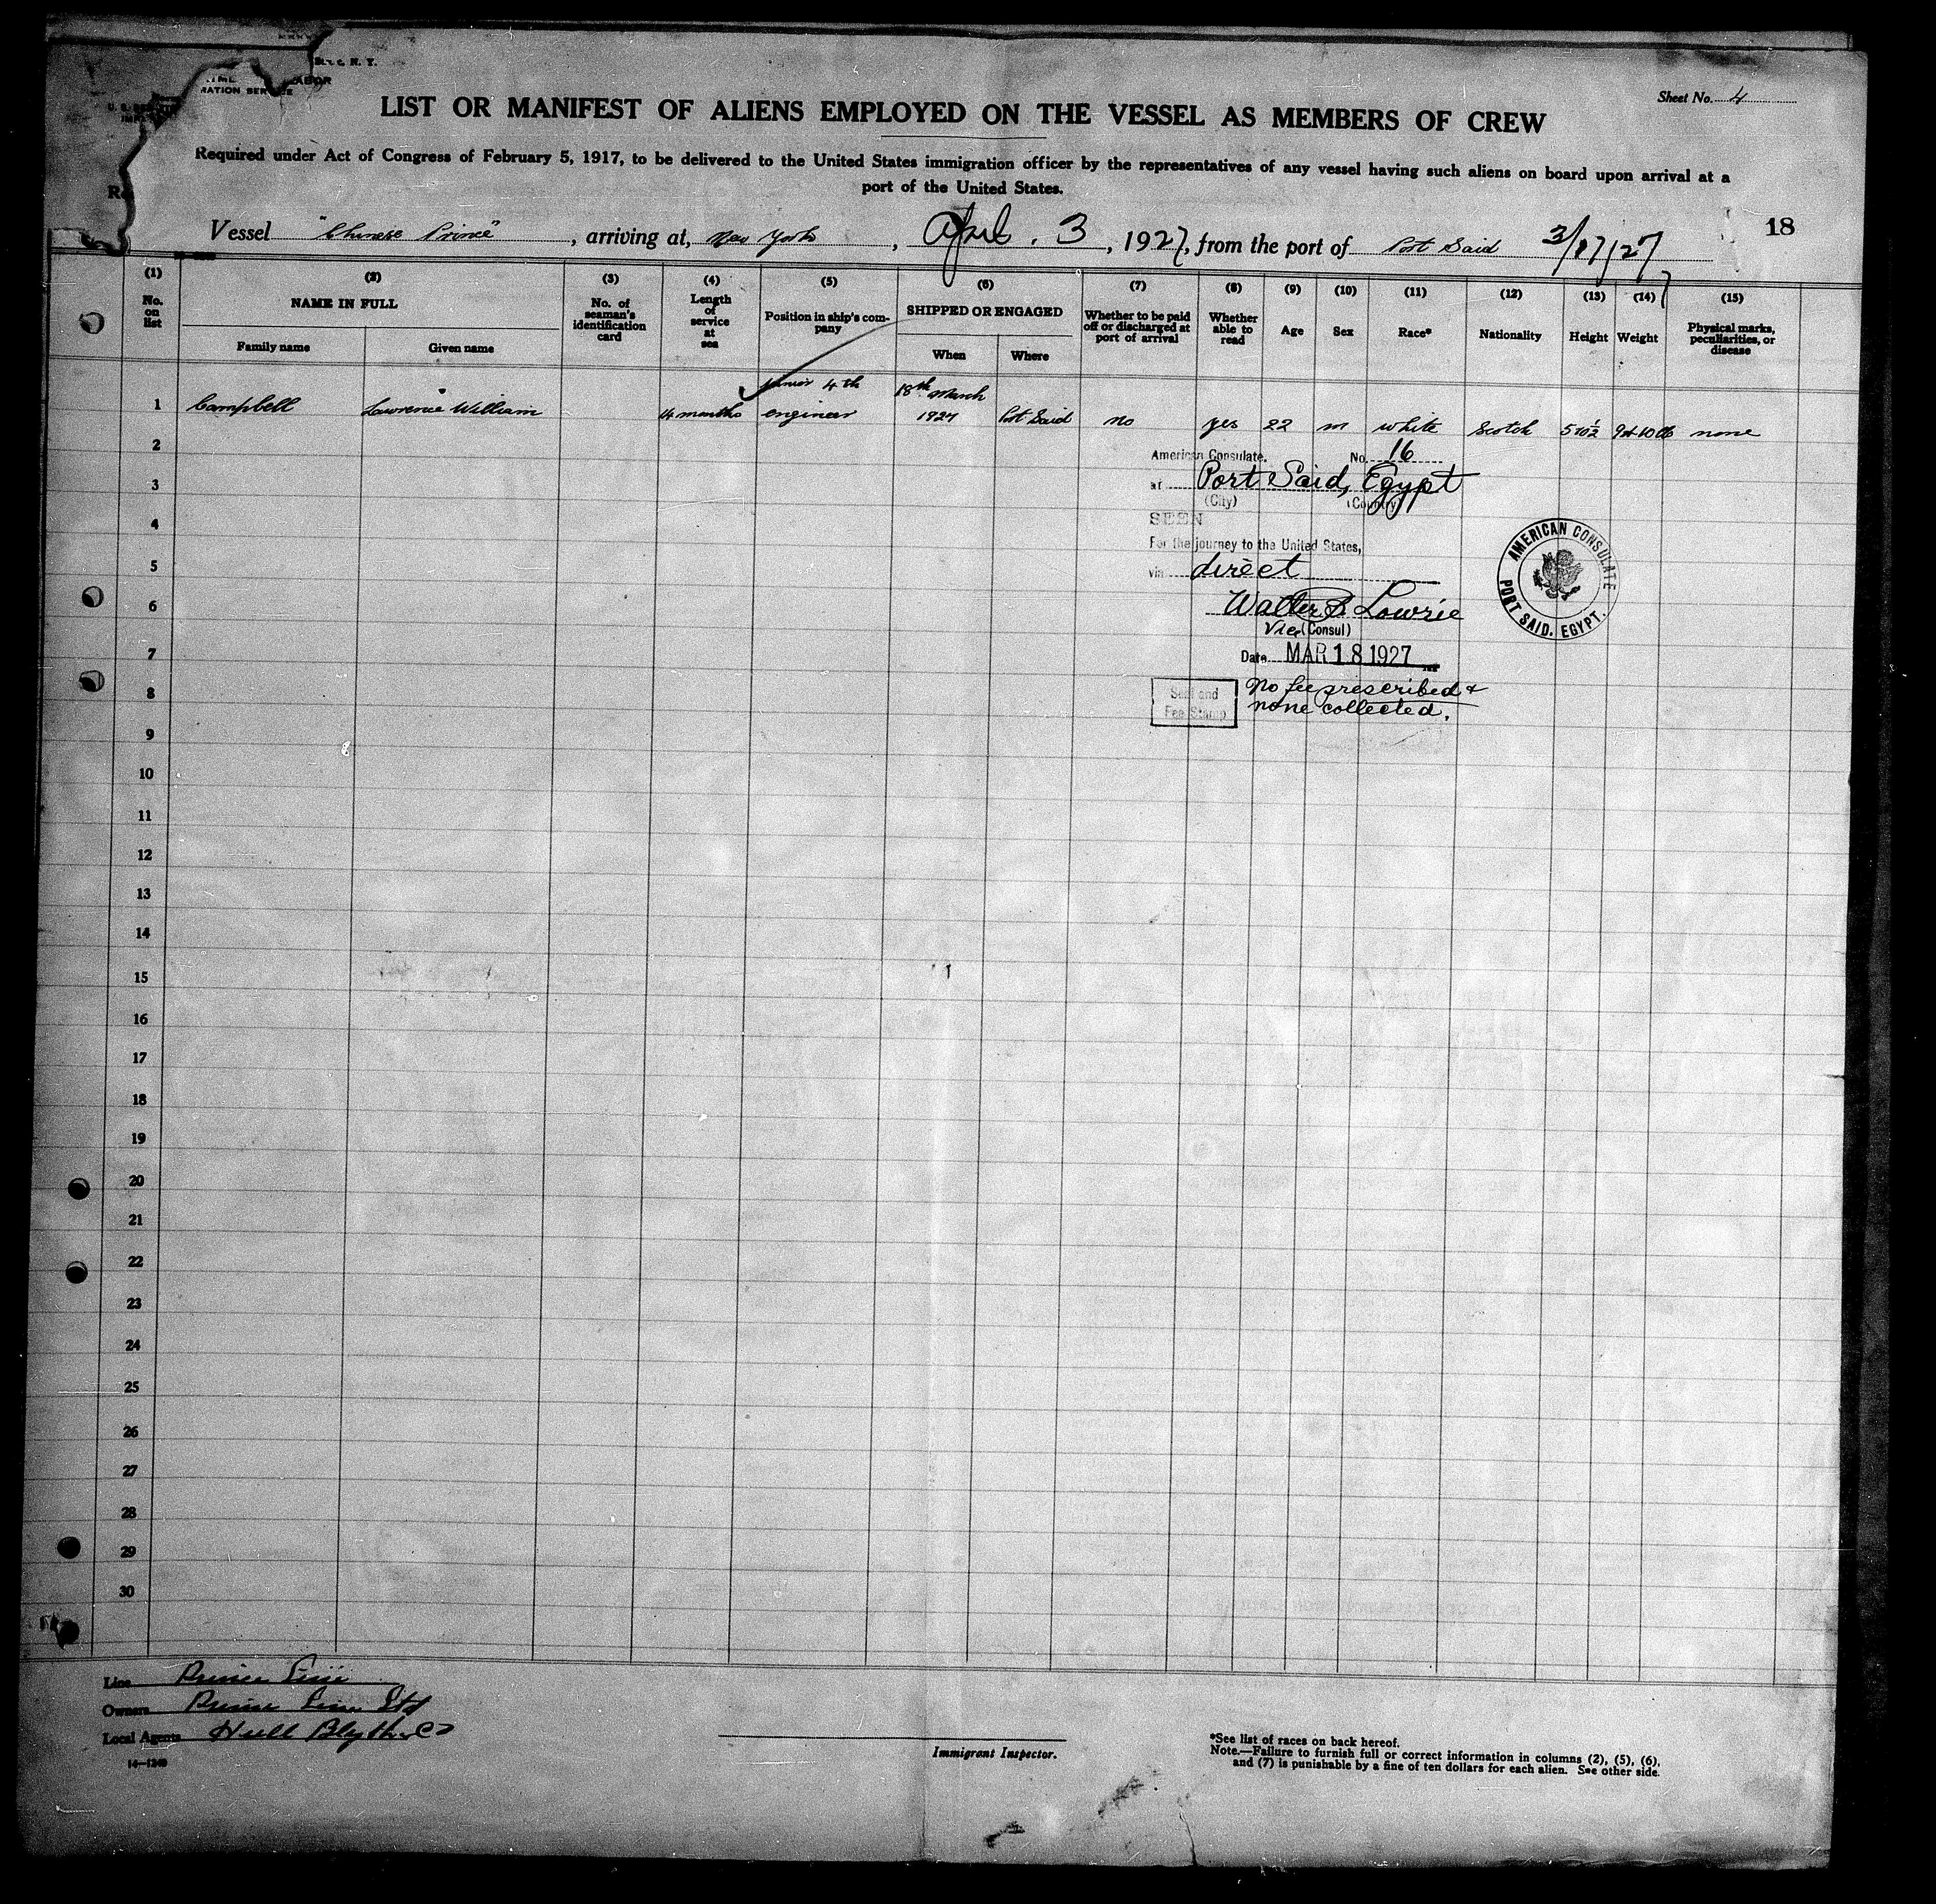 B. I. C. N. Y.
LABOR
RATION SERVICE
Sheet No. 4
LIST OR MANIFEST OF ALIENS EMPLOYED ON THE VESSEL AS MEMBERS OF CREW
Required under Act of Congress of February 5, 1917, to be delivered to the United States immigration officer by the representatives of any vessel having such aliens on board upon arrival at a
port of the United States.
18
Vessel "Chinese Prince", arriving at, New York, April. 3, 1927, from the port of Port Said 3/17/27
(1) (2) (3) (4) (5) (6) (7) (8) (9) (10) (11) (12) (13) (14) (15)
No. on list
NAME IN FULL
Family name
Given name
No. of seaman's identification card
Length of service at sea
Position in ship's company
SHIPPED OR ENGAGED
When
Where
Whether to be paid off or discharged at port of arrival
Whether able to read
Age
Sex
Race*
Nationality
Height
Weight
Physical marks, peculiarities, or disease
1 Campbell Lawrence William 4 months junior 4th engineer 18th March 1927 Port Said no yes 22 m white Scotch 5 10½ 9st 10 lb none
2
American Consulate. No. 16
3
at Port Said, Egypt
(City) (Country)
4
SEEN
For the journey to the United States,
5
via direct
6
Walter B Lowrie
Vice (Consul)
7
Date MAR 18 1927
8
Seal and
Fee Stamp
No fee prescribed &
none collected.
AMERICAN CONSULATE
PORT SAID. EGYPT.
9
10
11
12
13
14
15
16
17
18
19
20
21
22
23
24
25
26
27
28
29
30
Line Prince Line
Owners Prince Line Ltd
Local Agents Hull Blyth & Co
14—1240
Immigrant Inspector.
*See list of races on back hereof.
Note.—Failure to furnish full or correct information in columns (2), (5), (6),
and (7) is punishable by a fine of ten dollars for each alien. See other side.